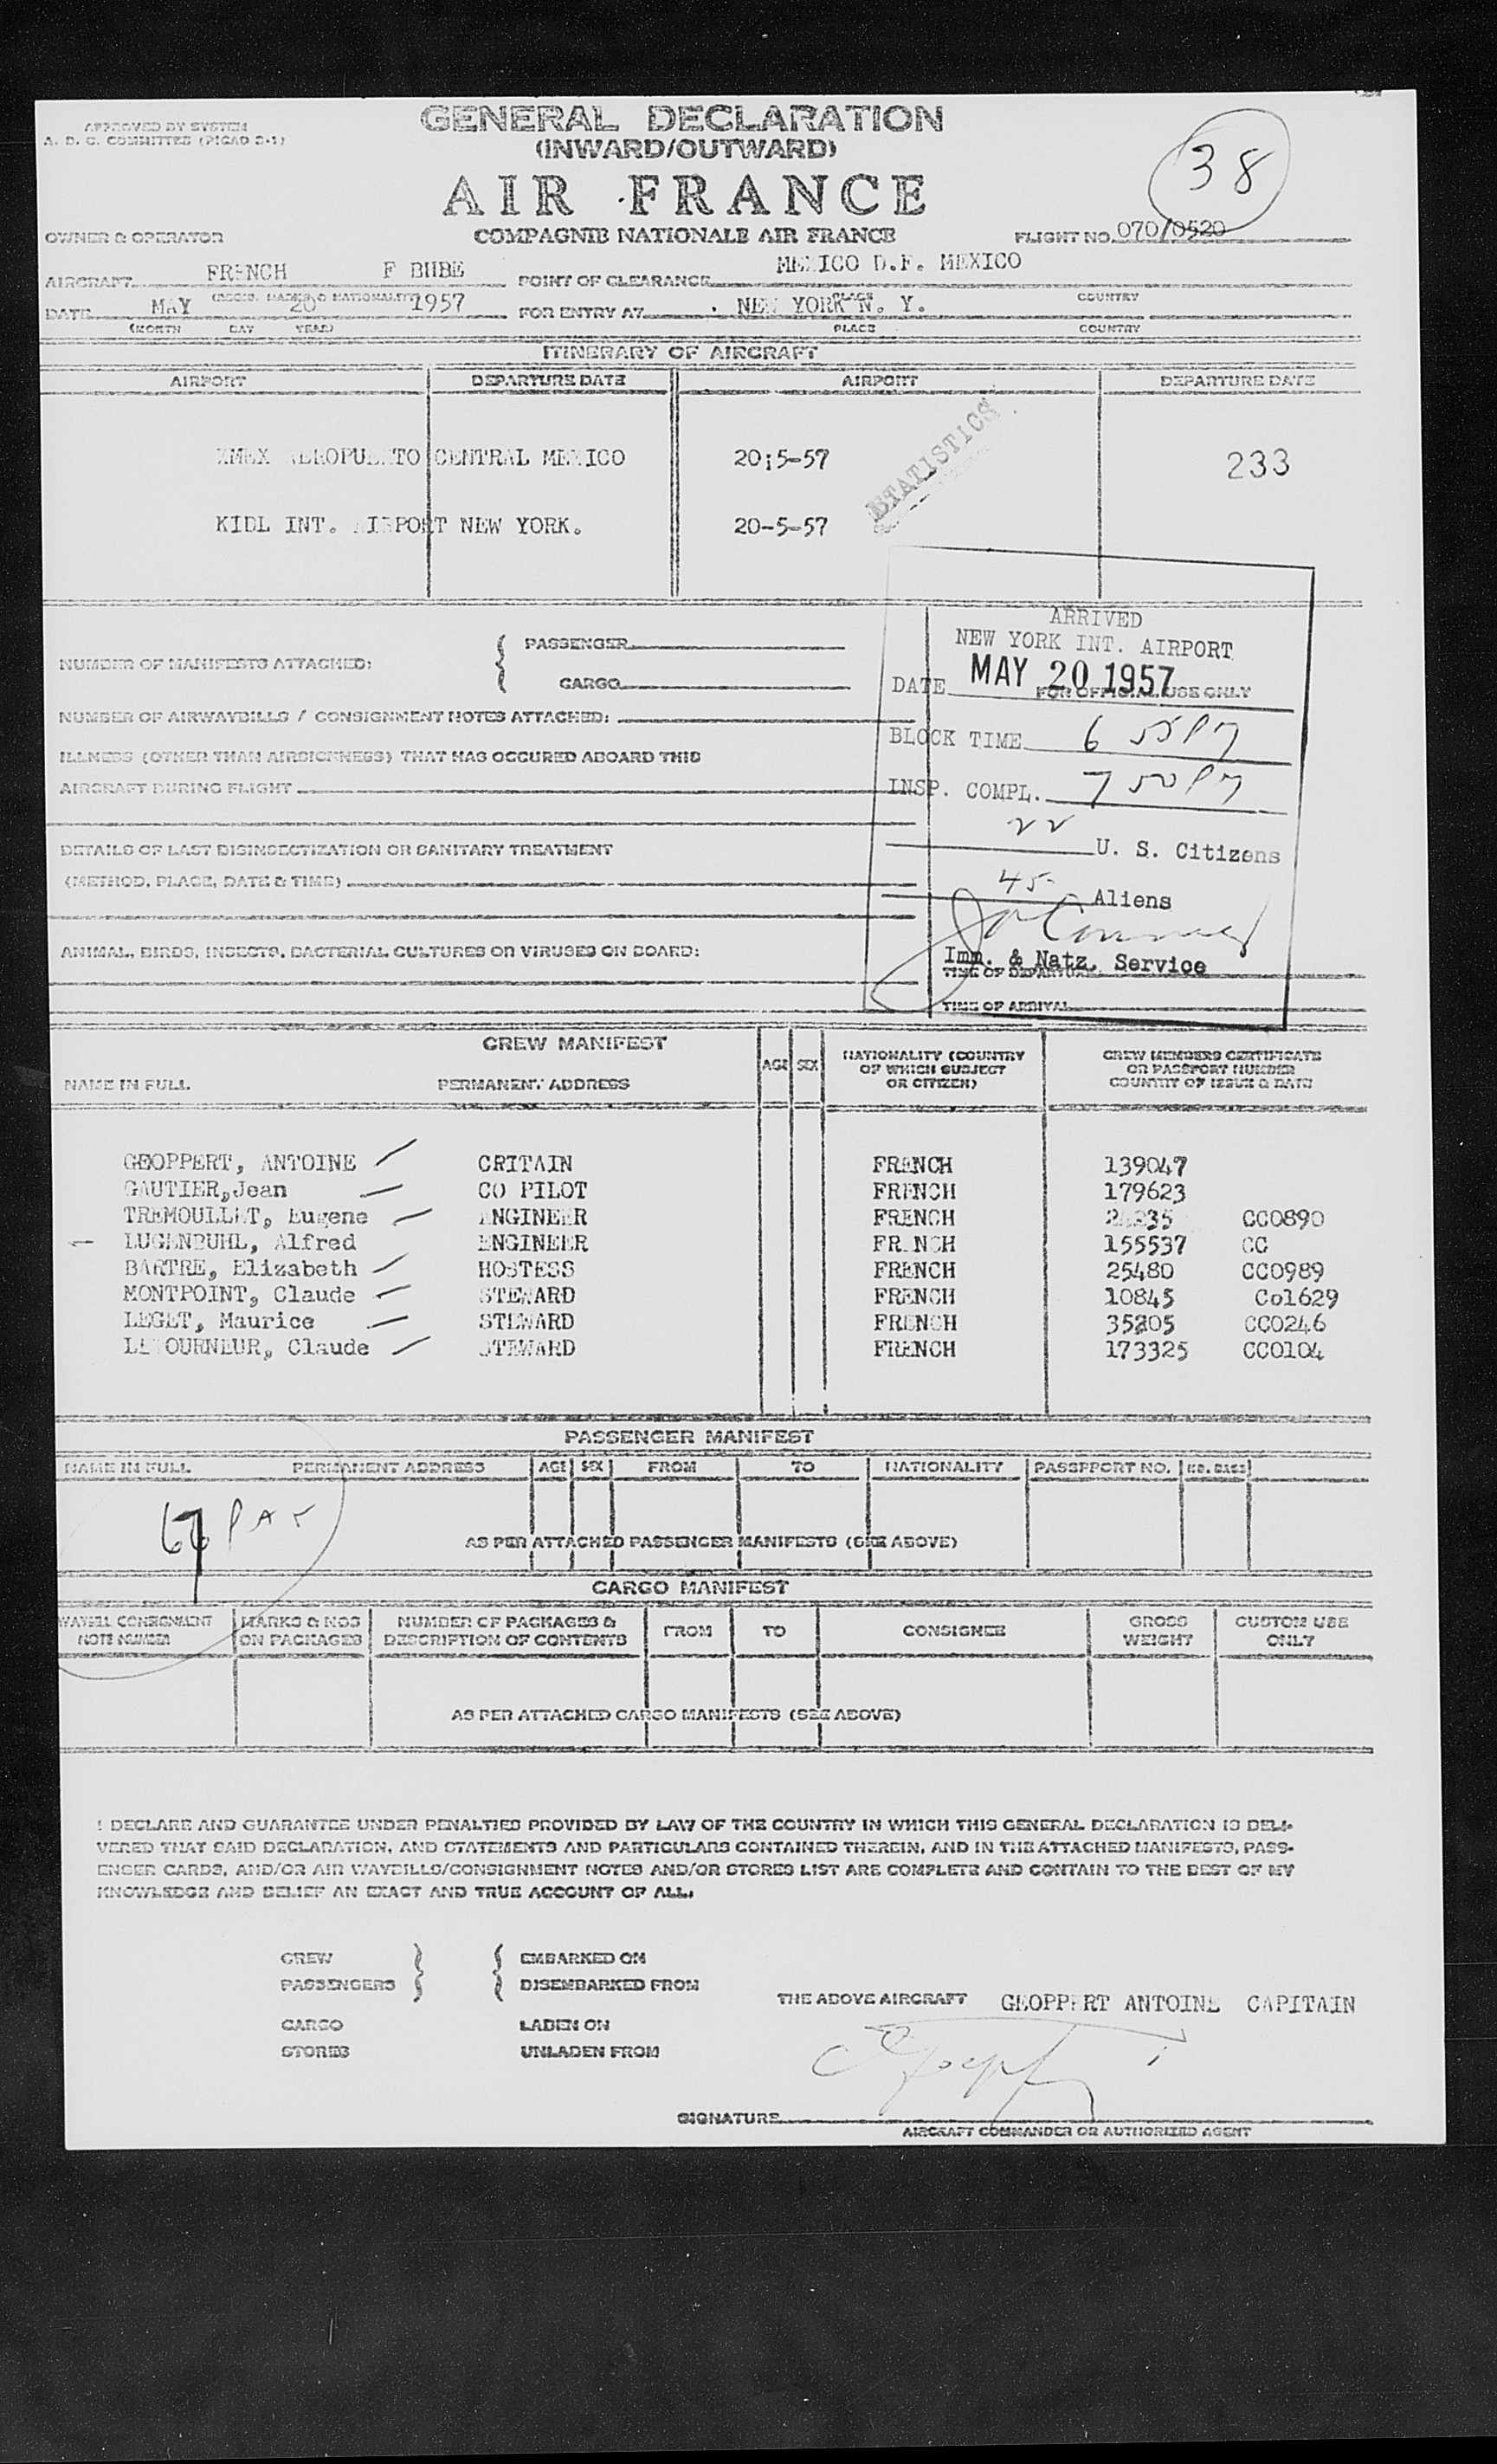 APPROVED BY SYSTEM
A. D. C. COMMITTEE (PICAO 2-1)
GENERAL DECLARATION
(INWARD/OUTWARD)
38
AIR FRANCE
OWNER & OPERATOR
COMPAGNIE NATIONALE AIR FRANCE
FLIGHT NO. 070/0520
AIRCRAFT FRENCH F BHBE
POINT OF CLEARANCE MEXICO D.F. MEXICO
PLACE COUNTRY
DATE MAY 20 1957
FOR ENTRY AT NEW YORK N. Y.
(MONTH DAY YEAR)
PLACE COUNTRY
ITINERARY OF AIRCRAFT
AIRPORT DEPARTURE DATE AIRPORT DEPARTURE DATE
STATISTICS
CENTRAL MEXICO 20;5-57 233
KIDL INT. AIRPORT NEW YORK. 20-5-57
ARRIVED
NEW YORK INT. AIRPORT
NUMBER OF MANIFESTS ATTACHED: { PASSENGER
CARGO
DATE MAY 20 1957
FOR OFFICIAL USE ONLY
NUMBER OF AIRWAYBILLS / CONSIGNMENT NOTES ATTACHED:
BLOCK TIME 6 55 PM
ILLNESS (OTHER THAN AIRSICKNESS) THAT HAS OCCURED ABOARD THIS
AIRCRAFT DURING FLIGHT
INSP. COMPL. 7 50 PM
22 U. S. Citizens
DETAILS OF LAST DISINSECTIZATION OR SANITARY TREATMENT
(METHOD, PLACE, DATE & TIME)
45 Aliens
ANIMAL, BIRDS, INSECTS, BACTERIAL CULTURES OR VIRUSES ON BOARD:
Imm. & Natz. Service
TIME OF DEPARTURE
TIME OF ARRIVAL
CREW MANIFEST
NAME IN FULL PERMANENT ADDRESS AGE SEX NATIONALITY (COUNTRY OF WHICH SUBJECT OR CITIZEN) CREW MEMBERS CERTIFICATE OR PASSPORT NUMBER COUNTRY OF ISSUE & DATE
GEOPPERT, ANTOINE CRITAIN FRENCH 139047
GAUTIER,Jean CO PILOT FRENCH 179623
TREMOULLET, Eugene ENGINEER FRENCH CC0890
LUGENBUHL, Alfred ENGINEER FRENCH 155537 CC
BARTRE, Elizabeth HOSTESS FRENCH 25480 CC0989
MONTPOINT, Claude STEWARD FRENCH 10845 Co1629
LEGET, Maurice STEWARD FRENCH 35205 CC0246
LETOURNEUR, Claude STEWARD FRENCH 173325 CC0104
PASSENGER MANIFEST
NAME IN FULL PERMANENT ADDRESS AGE SEX FROM TO NATIONALITY PASSPPORT NO. NO. BAGS
67 PAX
AS PER ATTACHED PASSENGER MANIFESTS (SEE ABOVE)
CARGO MANIFEST
WAYBILL CONSIGNMENT NOTE NUMBER MARKS & NOS ON PACKAGES NUMBER OF PACKAGES & DESCRIPTION OF CONTENTS FROM TO CONSIGNEE GROSS WEIGHT CUSTOM USE ONLY
AS PER ATTACHED CARGO MANIFESTS (SEE ABOVE)
I DECLARE AND GUARANTEE UNDER PENALTIES PROVIDED BY LAW OF THE COUNTRY IN WHICH THIS GENERAL DECLARATION IS DELI-
VERED THAT SAID DECLARATION, AND STATEMENTS AND PARTICULARS CONTAINED THEREIN, AND IN THE ATTACHED MANIFESTS, PASS-
ENGER CARDS, AND/OR AIR WAYBILLS/CONSIGNMENT NOTES AND/OR STORES LIST ARE COMPLETE AND CONTAIN TO THE BEST OF MY
KNOWLEDGE AND BELIEF AN EXACT AND TRUE ACCOUNT OF ALL.
CREW } { EMBARKED ON
PASSENGERS DISEMBARKED FROM
THE ABOVE AIRCRAFT GEOPPERT ANTOINE CAPITAIN
CARGO LADEN ON
STORES UNLADEN FROM
SIGNATURE
AIRCRAFT COMMANDER OR AUTHORIZED AGENT